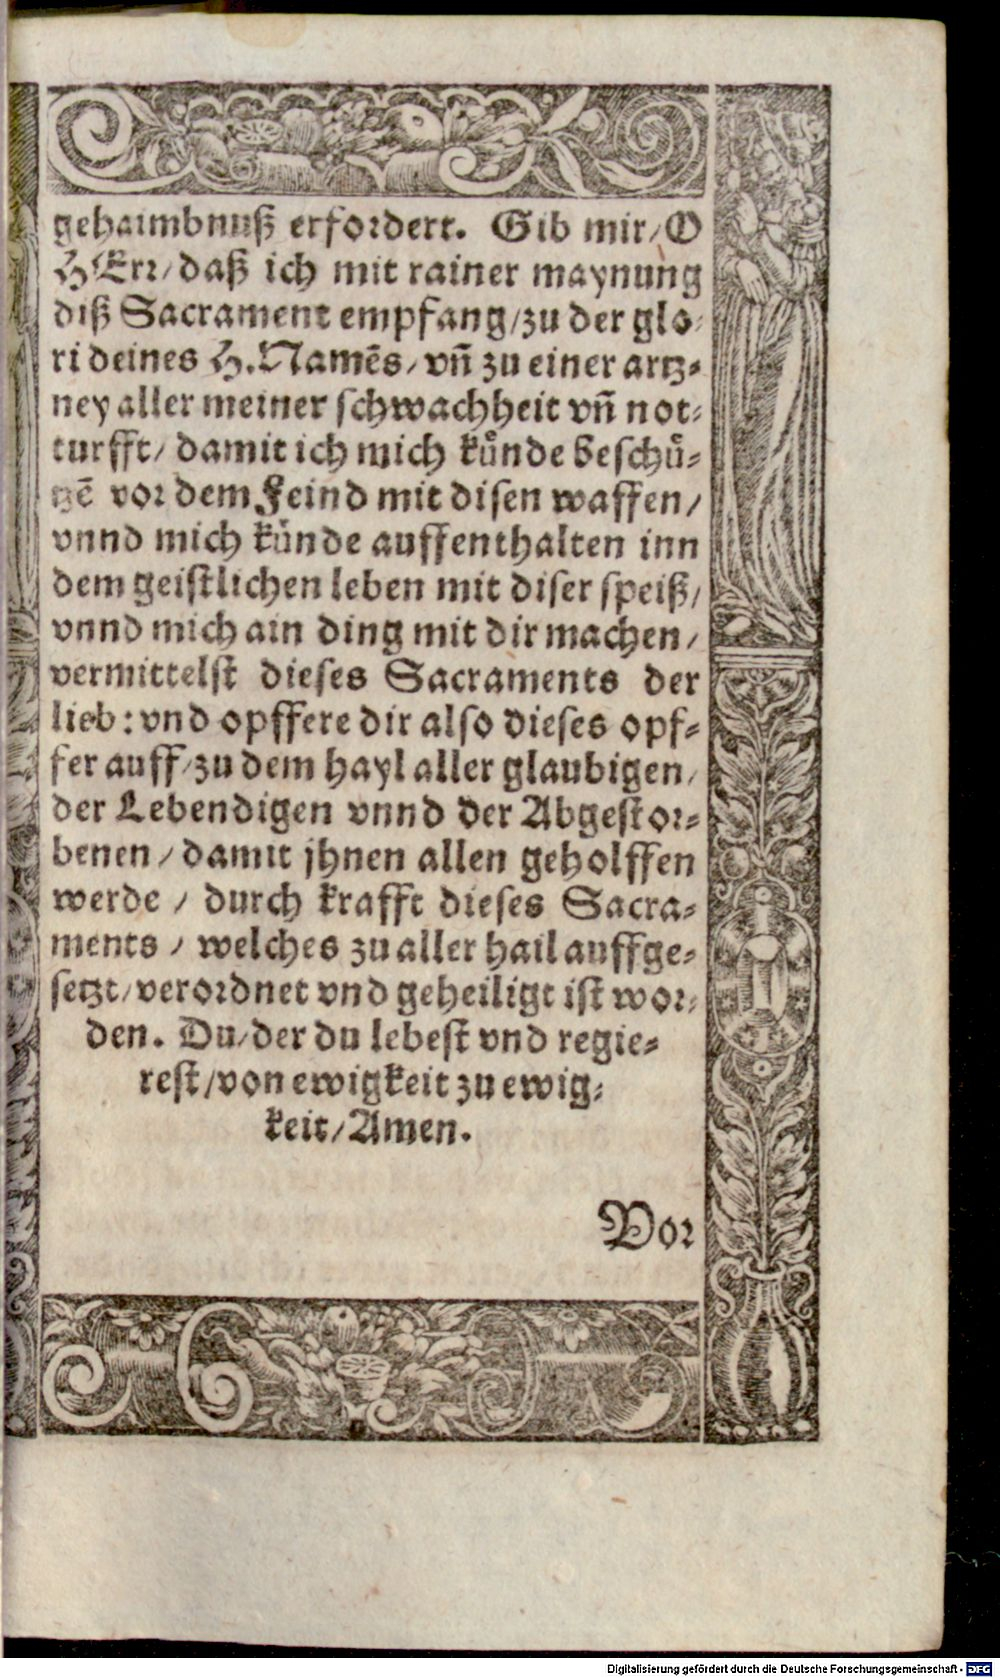 gehaimbnuß erfordert. Gib mir/ O
HErr/ daß ich mit rainer maynung
diß Sacrament empfang/ zu der glo-
ri deines H. Namēs/ vñ zu einer artz-
ney aller meiner schwachheit vñ not-
turfft/ damit ich mich kůnde beschů-
tzē vor dem Feind mit disen waffen/
vnnd mich kůnde auffenthalten inn
dem geistlichen leben mit diser speiß/
vnnd mich ain ding mit dir machen/
vermittelst dieses Sacraments der
lieb: vnd opffere dir also dieses opf-
fer auff/ zu dem hayl aller glaubigen/
der Lebendigen vnnd der Abgestor-
benen/ damit jhnen allen geholffen
werde/ durch krafft dieses Sacra-
ments/ welches zu aller hail auffge-
setzt/ verordnet vnd geheiligt ist wor-
den. Du/ der du lebest vnd regie-
rest/ von ewigkeit zu ewig-
keit/ Amen.
Vor
Digitalisierung gefördert durch die Deutsche Forschungsgemeinschaft - DFG